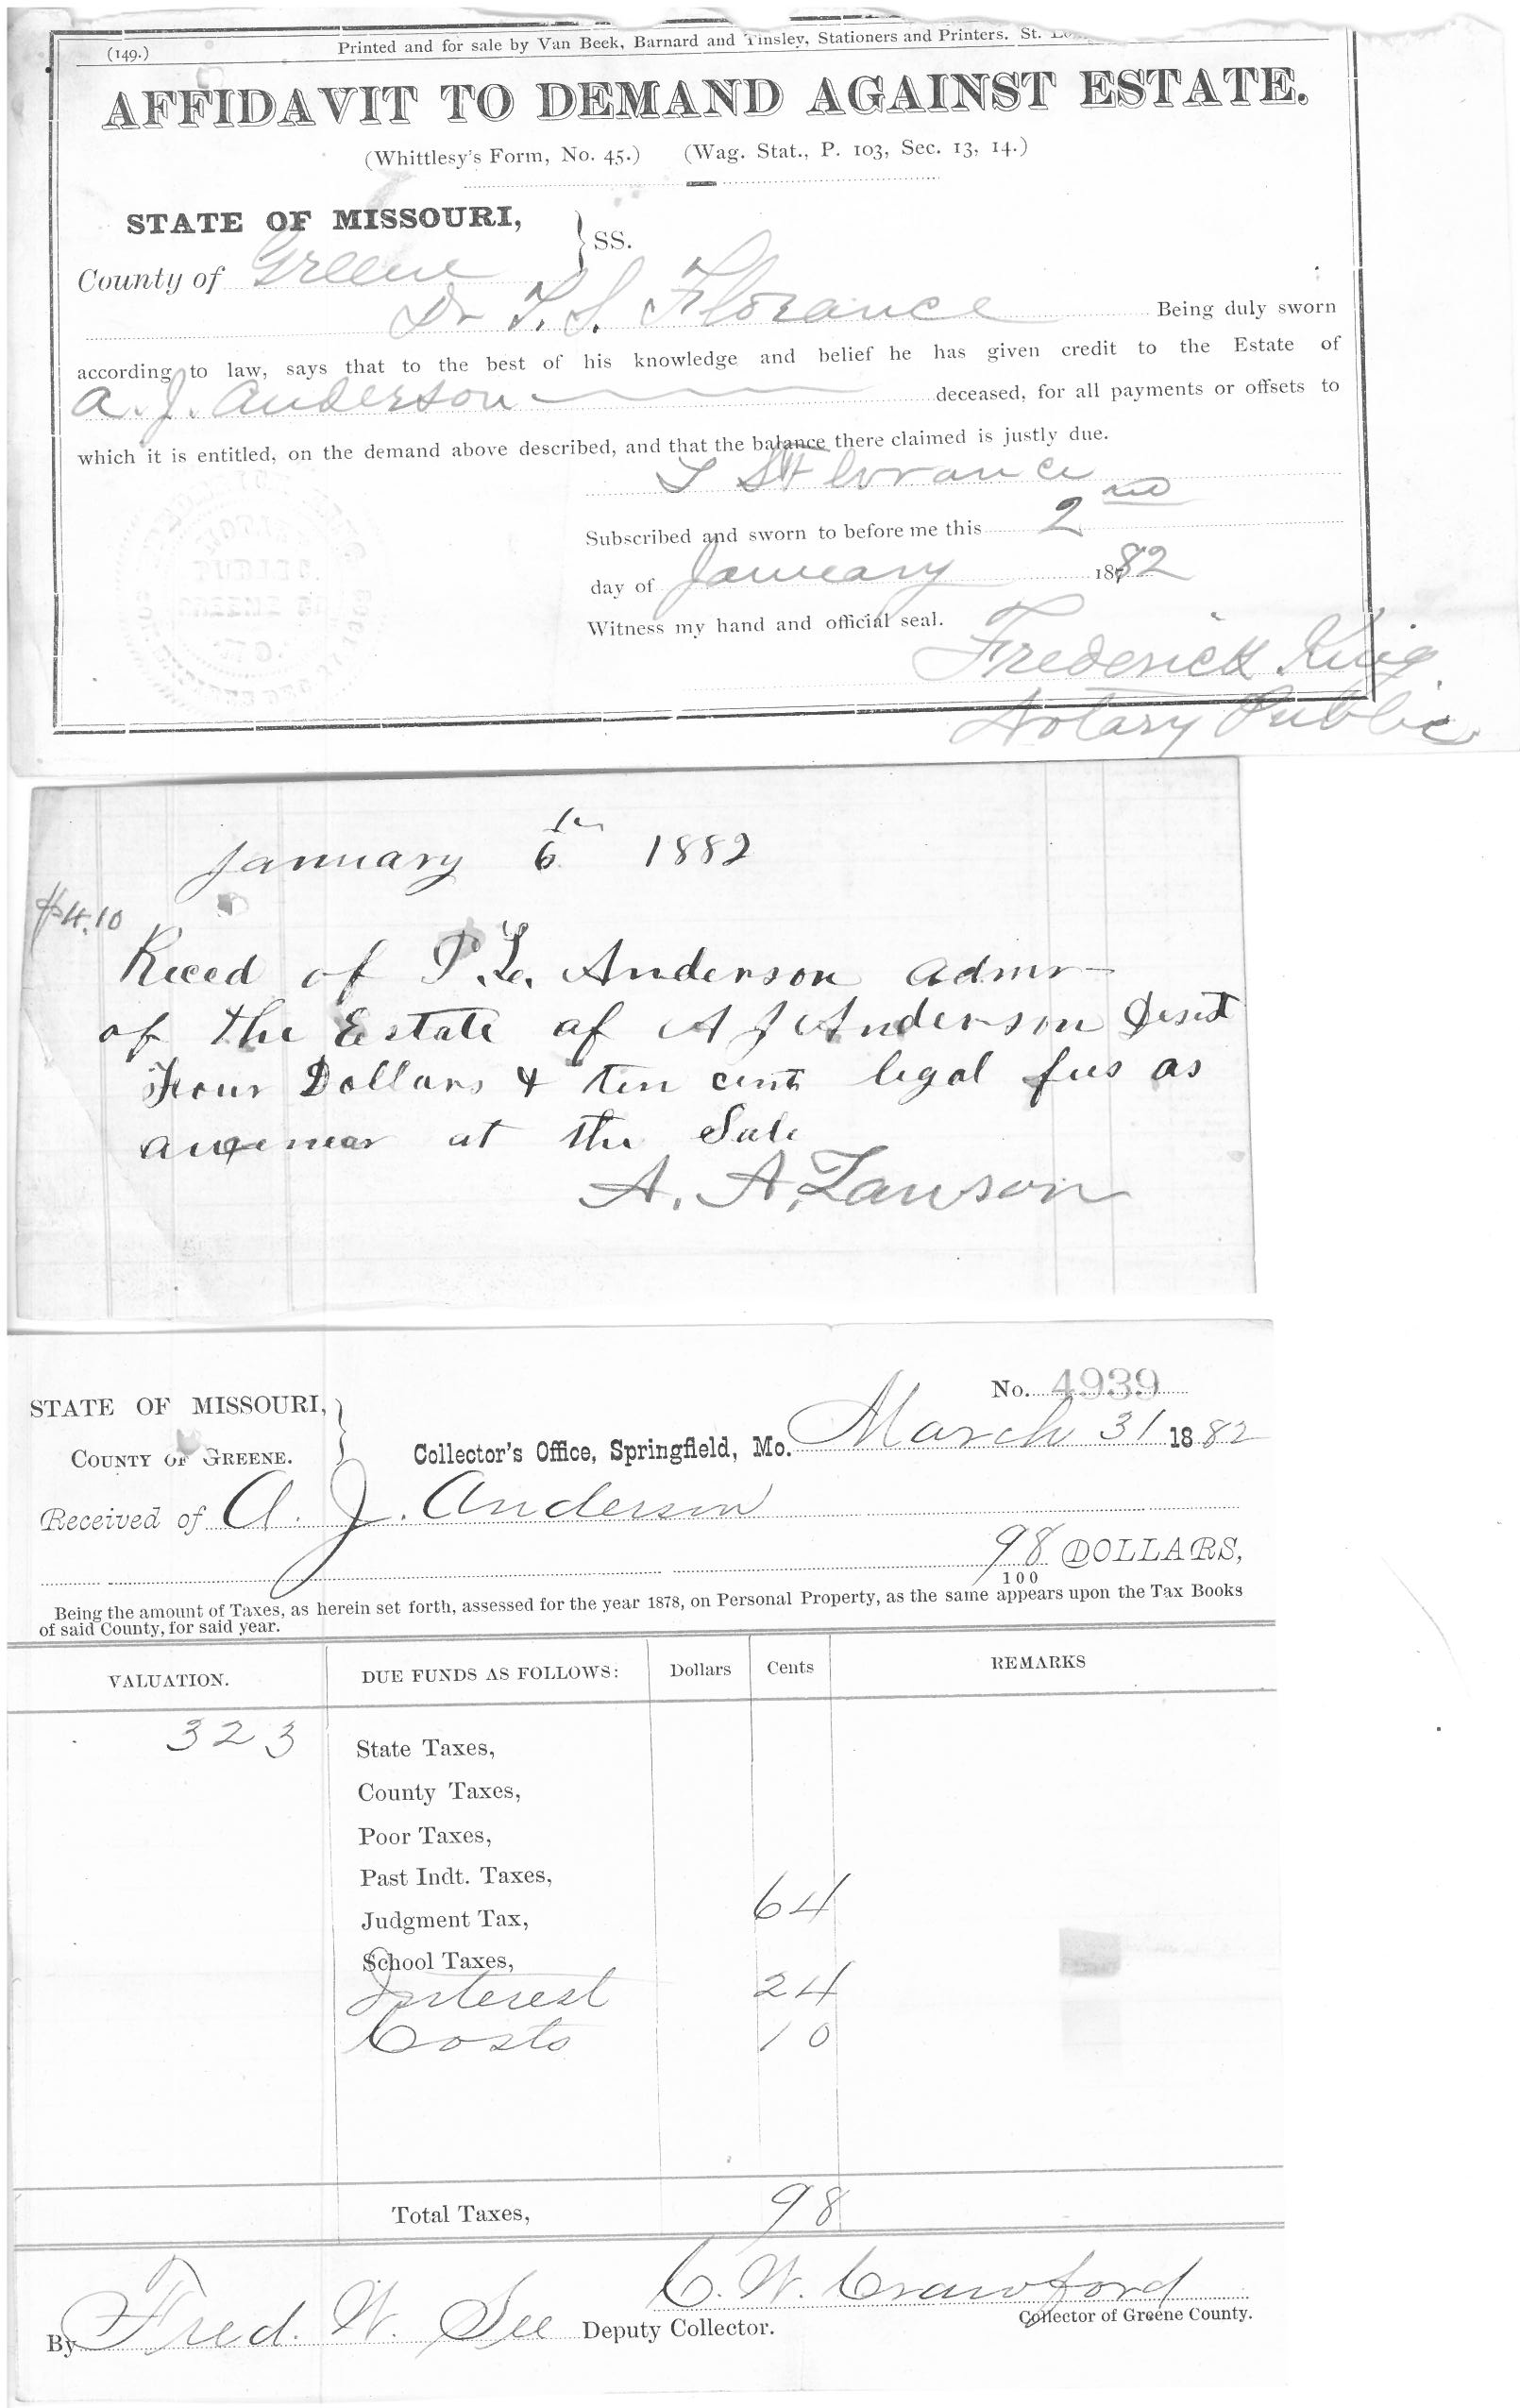 (149.) Printed and for sale by Van Beek, Barnard and Tinsley, Stationers and Printers. St.
AFFIDAVIT TO DEMAND AGAINST ESTATE.
(Whittlesy's Form, No. 45.) (Wag. Stat., P. 103, Sec. 13, 14.)
STATE OF MISSOURI, } SS.
County of Greene
Dr T. S. Florance Being duly sworn
according to law, says that to the best of his knowledge and belief he has given credit to the Estate of
A. J. Anderson deceased, for all payments or offsets to
which it is entitled, on the demand above described, and that the balance there claimed is justly due.
T S Florance
Subscribed and sworn to before me this 2nd
day of January 1882
Witness my hand and official seal.
Frederick King
Notary Public
NOTARY
PUBLIC
GREENE CO
January 6th 1882
$4.10
Reced of P. L. Anderson admr
of the Estate of A J Anderson
Four Dollars & ten cents legal fees as
at the Sale
A. A. Lawson
No. 4939
STATE OF MISSOURI, }
COUNTY OF GREENE. Collector's Office, Springfield, Mo. March 31 1882
Received of A. J. Anderson
98/100 DOLLARS,
Being the amount of Taxes, as herein set forth, assessed for the year 1878, on Personal Property, as the same appears upon the Tax Books
of said County, for said year.
VALUATION. DUE FUNDS AS FOLLOWS: Dollars Cents REMARKS
323 State Taxes,
County Taxes,
Poor Taxes,
Past Indt. Taxes,
Judgment Tax, 64
School Taxes,
Interest 24
Costs 10
Total Taxes, 98
C. W. Crawford
Collector of Greene County.
By Fred. W. See Deputy Collector.